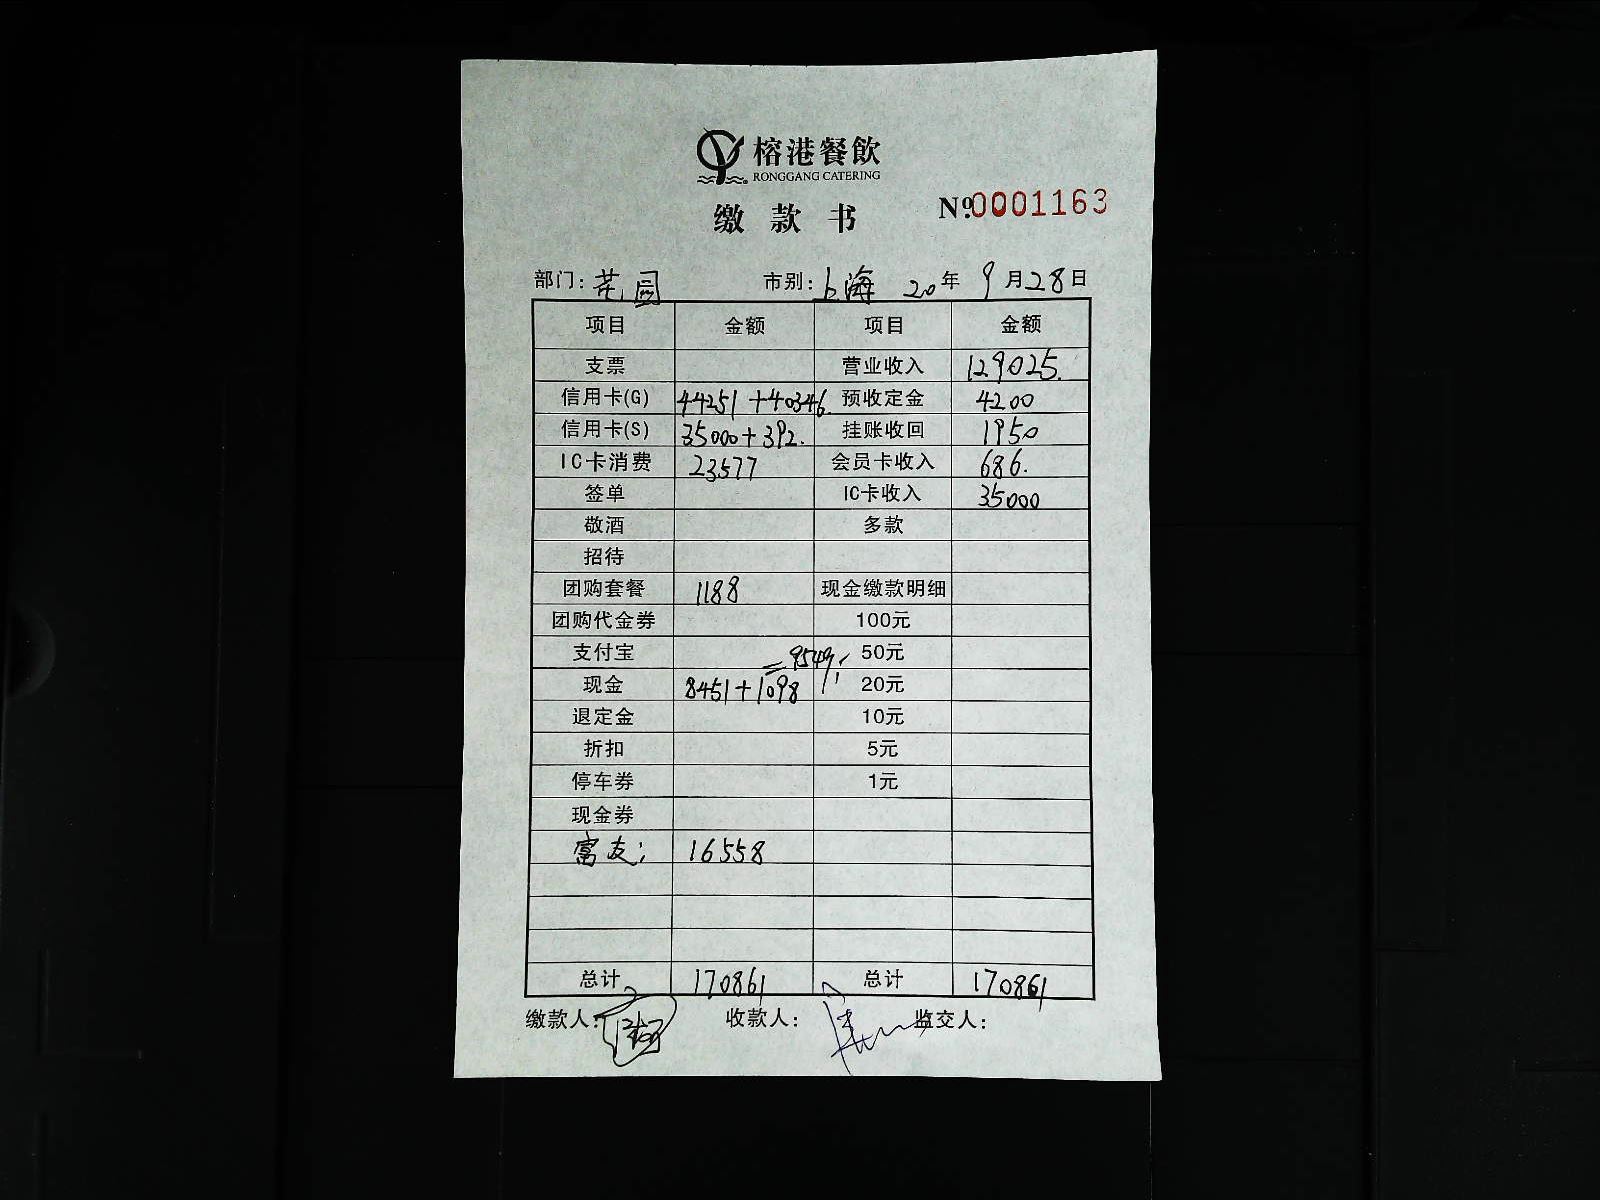 榕港餐飲
RONGGANG CATERING
缴款书 №0001163
部门: 花园 市别: 上海 20年9月28日
项目 金额 项目 金额
支票 营业收入 129025.
信用卡(G) 44251+40346. 预收定金 4200
信用卡(S) 35000+392. 挂账收回 1950
IC卡消费 23577 会员卡收入 686.
签单 IC卡收入 35000
敬酒 多款
招待
团购套餐 1188 现金缴款明细
团购代金券 100元
支付宝 =9549 50元
现金 8451+1098 20元
退定金 10元
折扣 5元
停车券 1元
现金券
富友: 16558
总计 170861 总计 170861
缴款人: 收款人: 监交人: